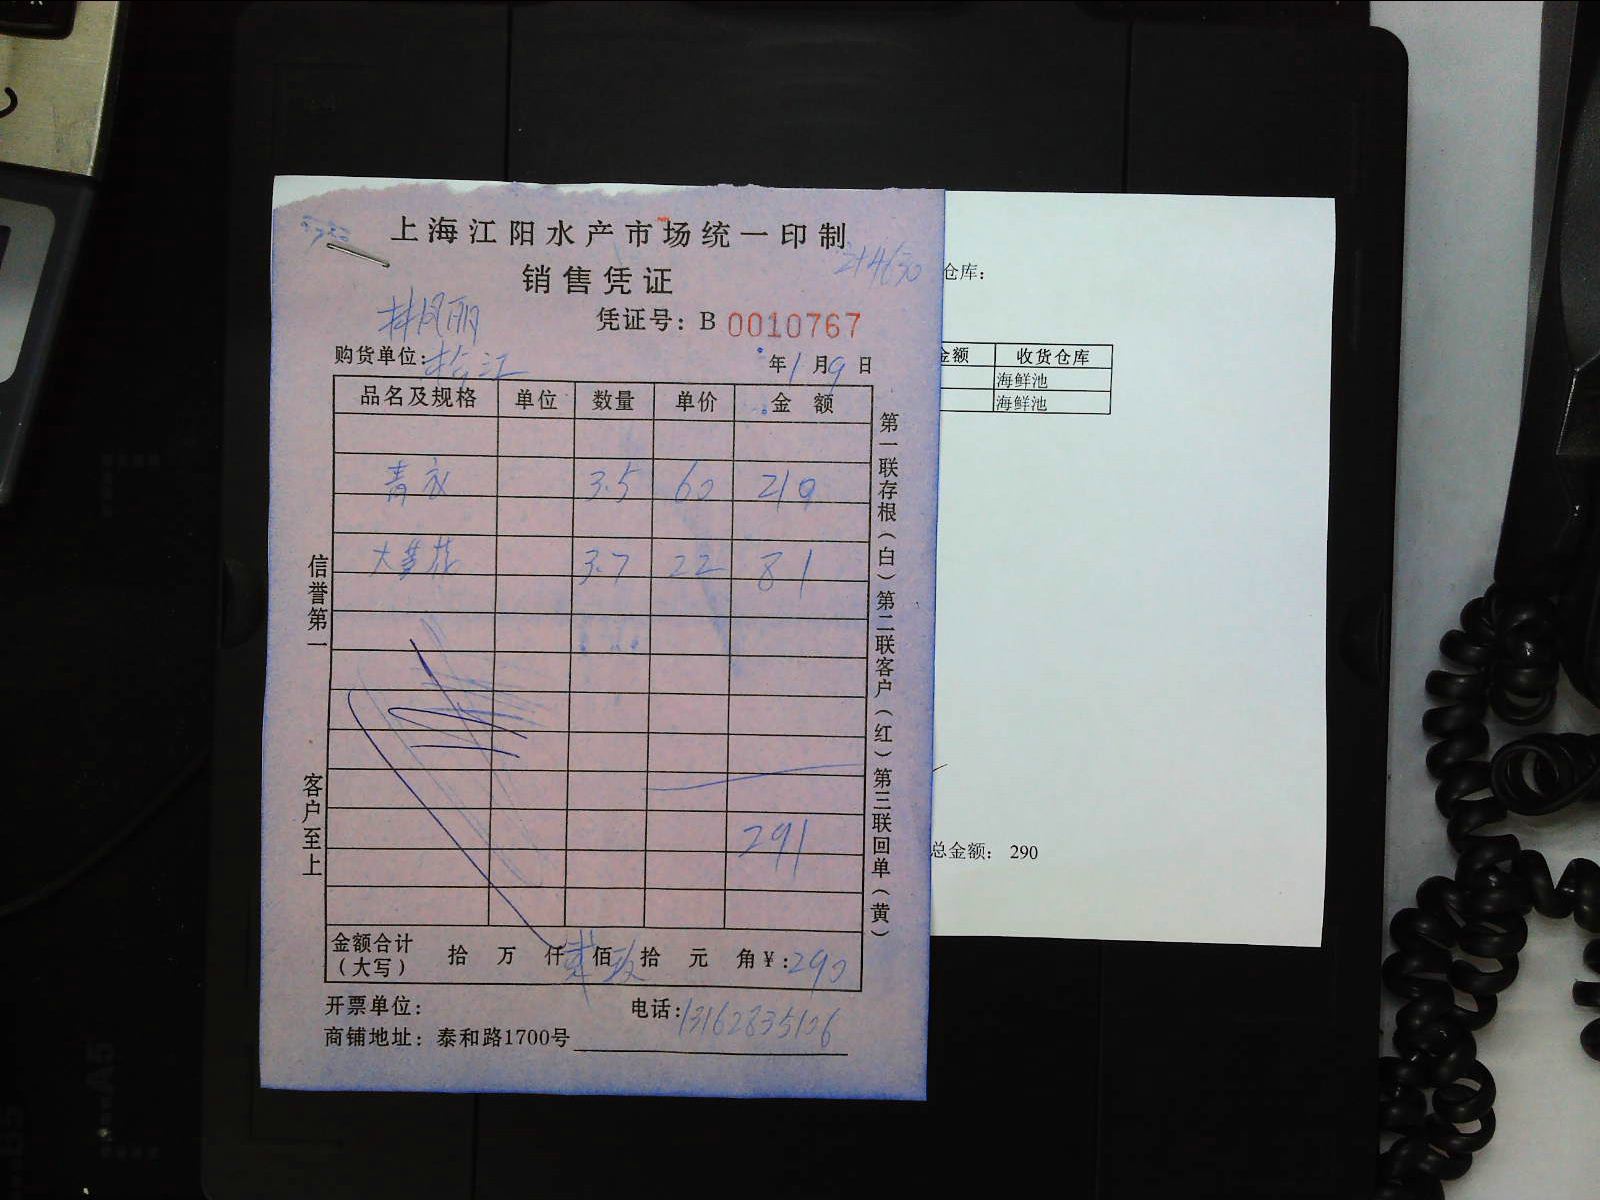 上海江阳水产市场统一印制
销售凭证
214650
林凤丽
凭证号：B 0010767
购货单位：松江
年1月9日
品名及规格 单位 数量 单价 金额
青衣 3.5 60 210
大黄花 3.7 22 81
291
金额合计（大写） 拾 万 仟 贰佰 玖拾 元 角¥:290
开票单位：
电话：13162835126
商铺地址：泰和路1700号
信誉第一
客户至上
第一联存根（白）第二联客户（红）第三联回单（黄）
仓库：
金额 收货仓库
海鲜池
海鲜池
总金额： 290
A5
B5